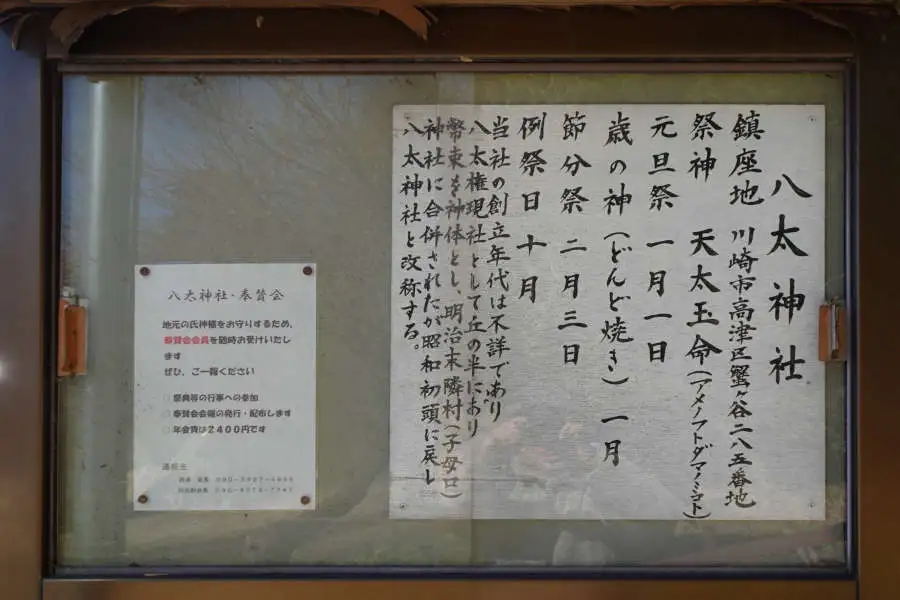 八太神社
鎮座地 川崎市高津区蟹ヶ谷二八五番地
祭神 天太玉命(アメノフトダマノミコト)
元旦祭 一月一日
歳の神(どんど焼き) 一月
節分祭 二月三日
例祭日 十月
当社の創立年代は不詳であり
八太権現社として丘の半にあり
幣束を神体とし、明治末隣村(子母口)
神社に合併されたが昭和初頭に戻し
八太神社と改称する。
八太神社・奉賛会
地元の氏神様をお守りするため、
奉賛会会員を随時お受けいたし
ます
ぜひ、ご一報ください
○祭典等の行事への参加
○奉賛会会報の発行・配布します
○年会費は2400円です
連絡先